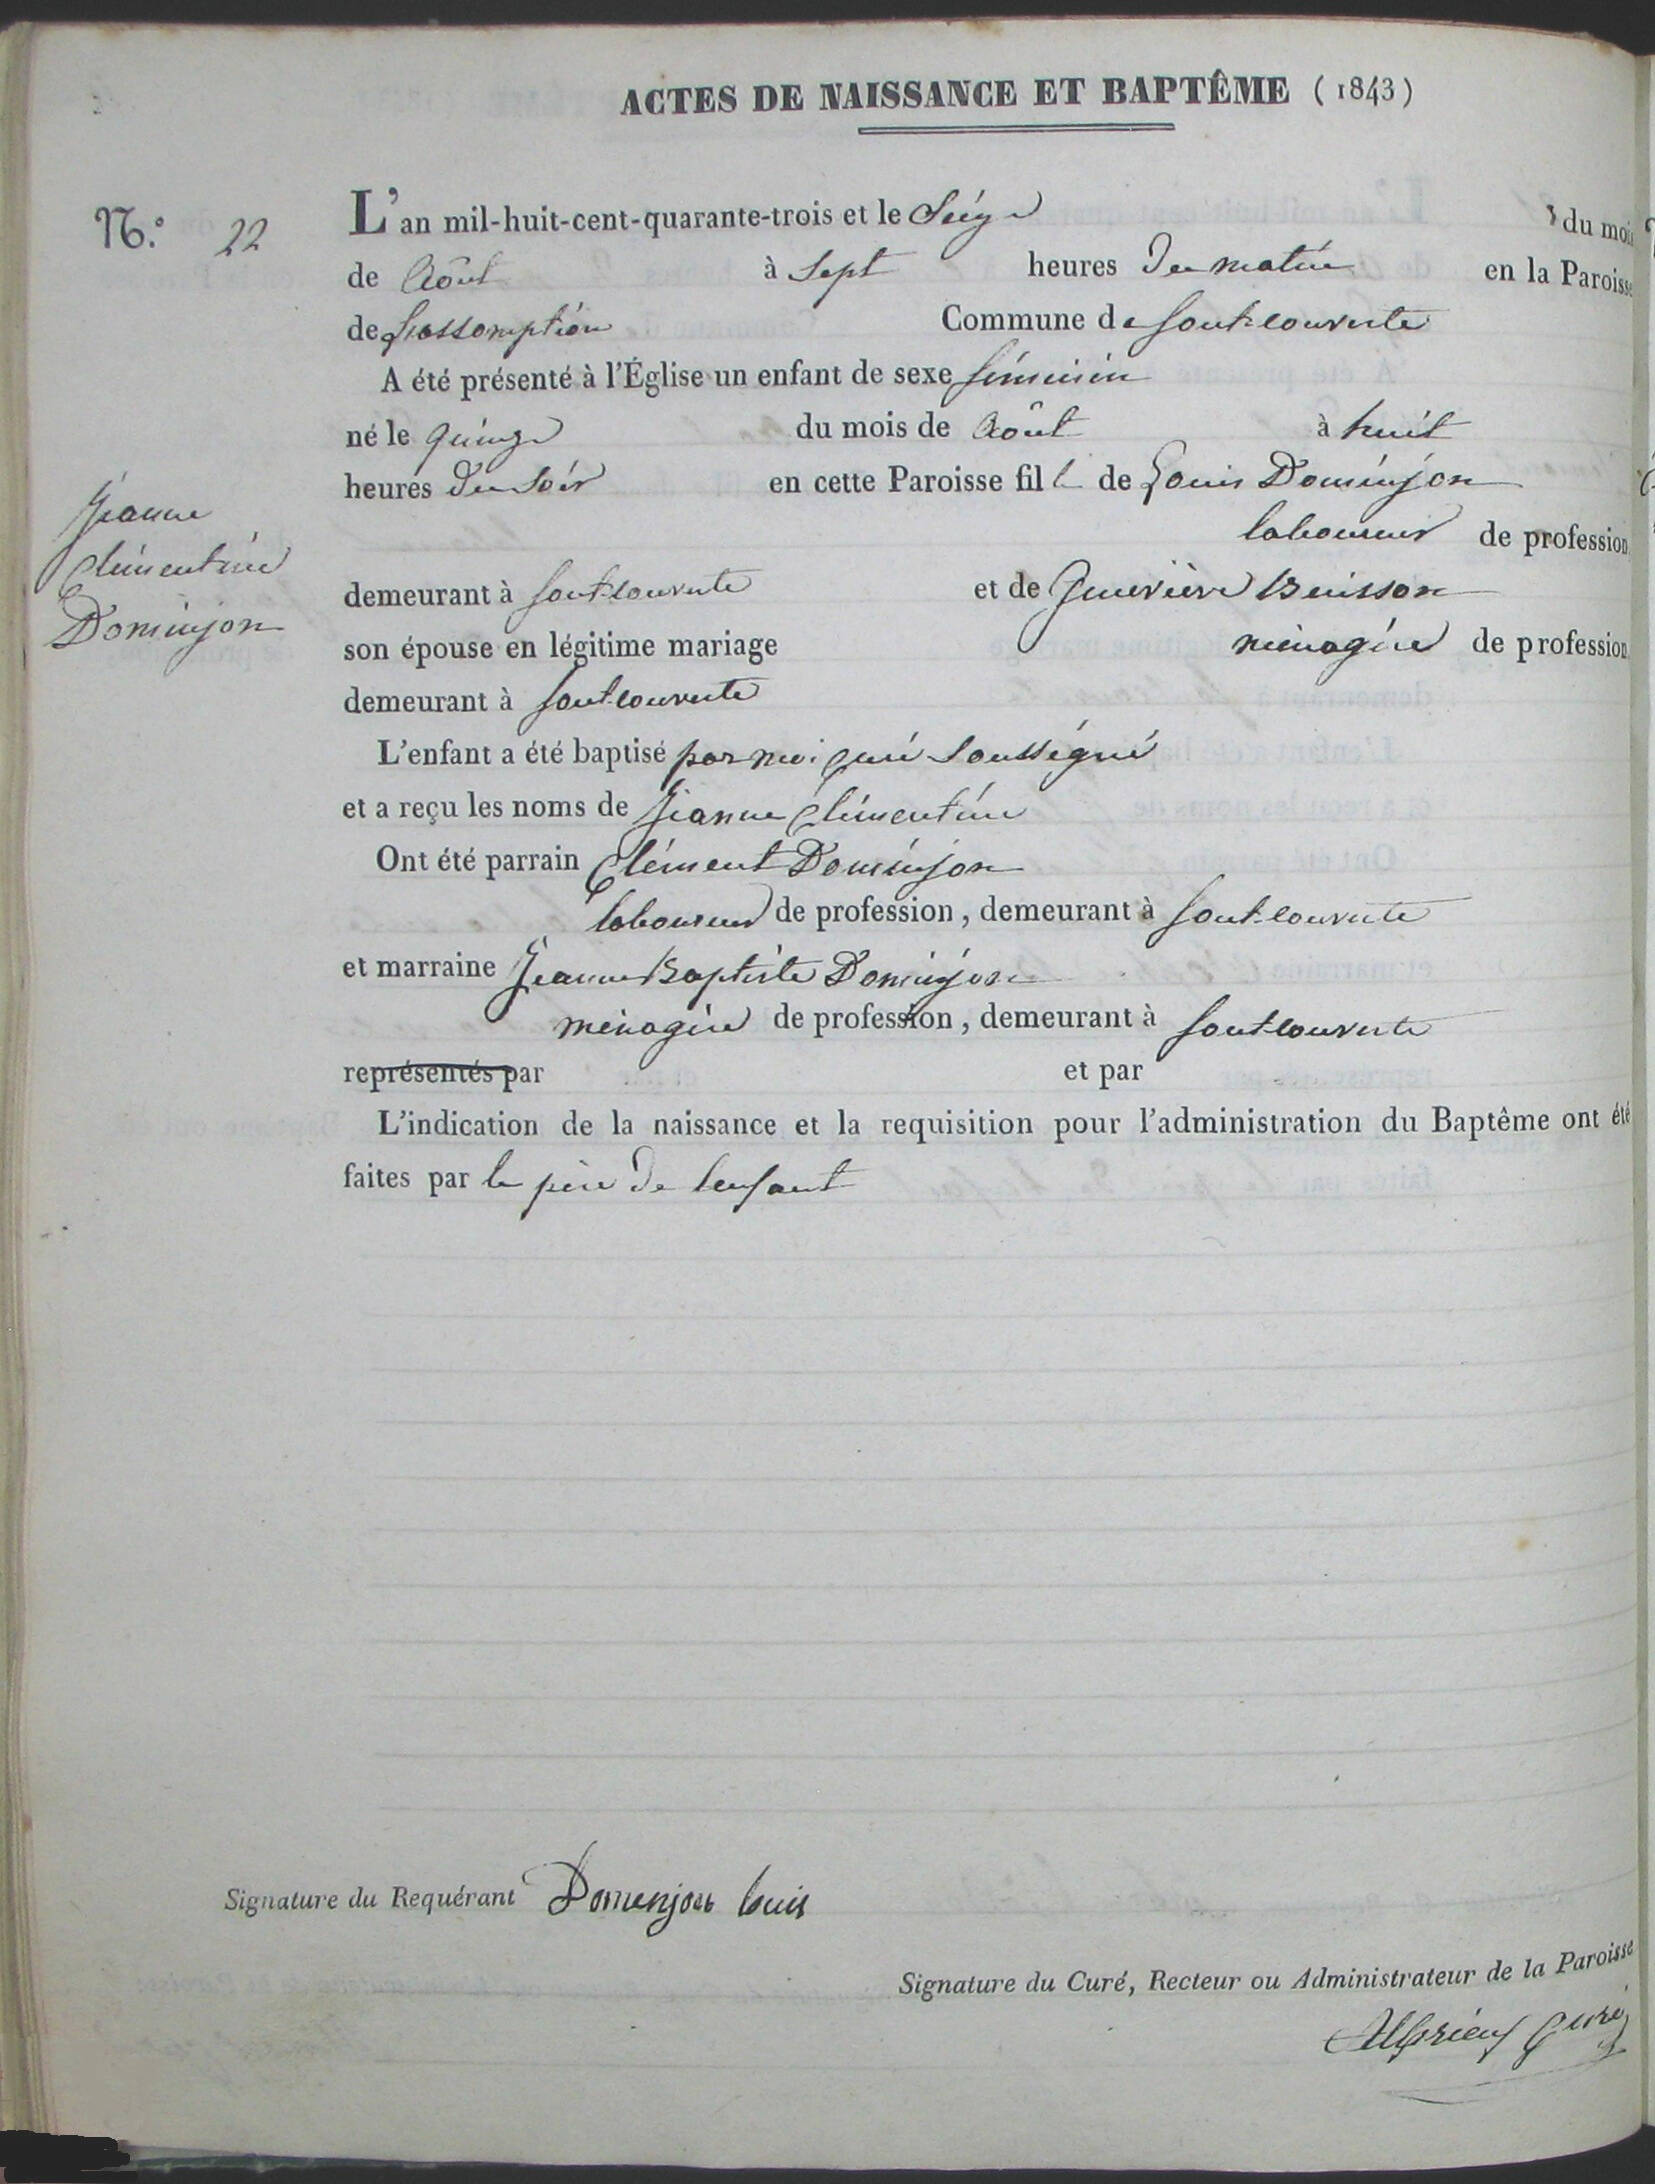 ACTES DE NAISSANCE ET BAPTÊME (1843)
N.° 22
L'an mil-huit-cent-quarante-trois et le Seize du mois
de Aôut à Sept heures du matin en la Paroisse
de Lassomption Commune de Sont-couverte
A été présenté à l'Église un enfant de sexe féminin
né le quinze du mois de Aôut à huit
heures du Soir en cette Paroisse fill de Louis Dominjon
laboureur de profession
Jeanne
Clémentine
Dominjon
demeurant à Sont-couverte et de Geneviève Buisson
son épouse en légitime mariage ménagère de profession
demeurant à Sont-couverte
L'enfant a été baptisé par moi Curé Soussigné
et a reçu les noms de Jeanne Clémentine
Ont été parrain Clément Dominjon
laboureur de profession, demeurant à Sont-couverte
et marraine Jeanne Baptiste Dominjon
ménagère de profession, demeurant à Sont-couverte
représentés par et par
L'indication de la naissance et la requisition pour l'administration du Baptême ont été
faites par le père de lenfant
Signature du Requérant Domenjon louis
Signature du Curé, Recteur ou Administrateur de la Paroisse
Curé